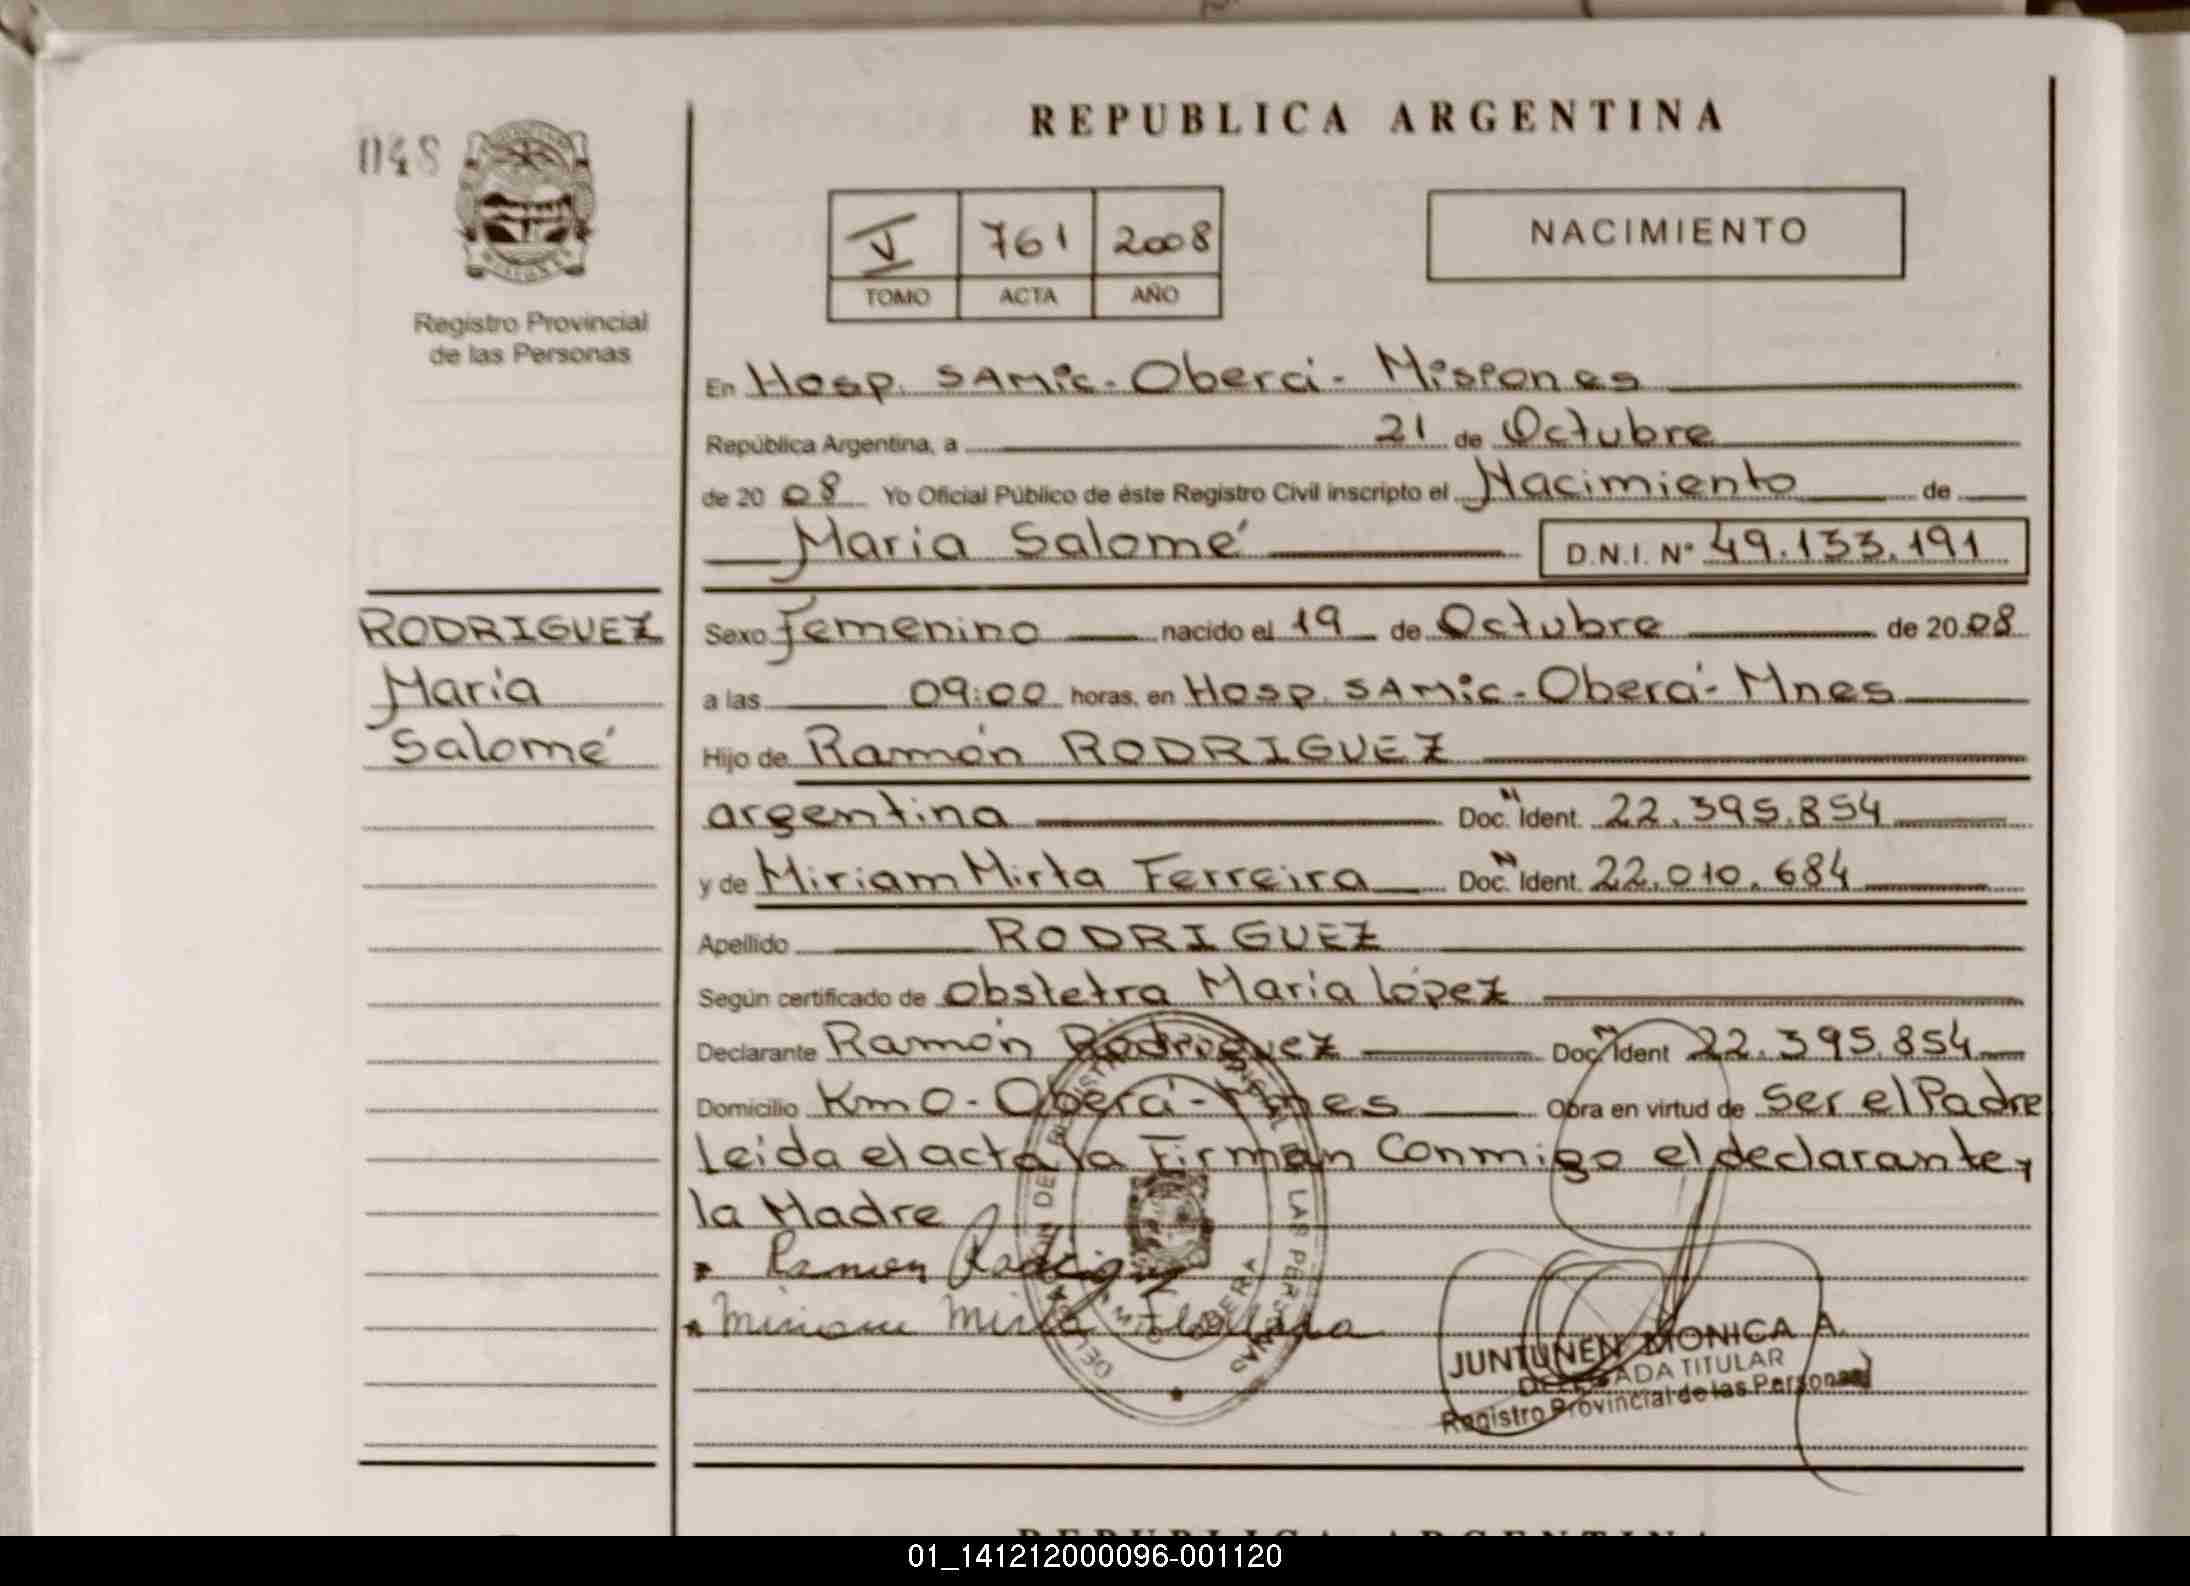 048
Registro Provincial
de las Personas
REPUBLICA ARGENTINA
V 761 2008
TOMO ACTA AÑO
NACIMIENTO
En Hosp. SAMic - Oberá - Misiones
República Argentina, a 21 de Octubre
de 2008 Yo Oficial Público de éste Registro Civil inscripto el Nacimiento de
María Salomé D.N.I. Nº 49.133.191
RODRIGUEZ
María
Salomé
Sexo Femenino nacido el 19 de Octubre de 2008
a las 09:00 horas, en Hosp. SAMic - Oberá - Mnes
Hijo de Ramón RODRIGUEZ
argentina Doc. Ident. 22.395.854
y de Miriam Mirta Ferreira Doc. Ident. 22.010.684
Apellido RODRIGUEZ
Según certificado de Obstetra María López
Declarante Ramón Rodriguez Doc. Ident 22.395.854
Domicilio Km 0 - Oberá - Mnes Obra en virtud de Ser el Padre
Leida el acta la Firman Conmigo el declarante y
la Madre
Ramon Rodriguez
Miriam Mirta Ferreira
JUNTUNEN MONICA A.
DELEGADA TITULAR
Registro Provincial de las Personas
REPUBLICA ARGENTINA
01_141212000096-001120